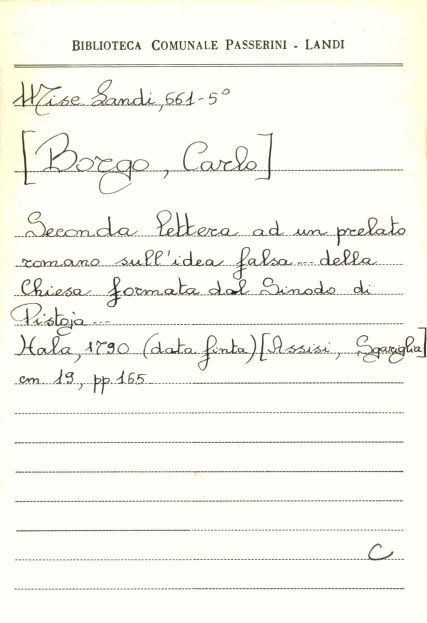 BIBLIOTECA COMUNALE PASSERINI - LANDI
Misc Landi, 661-5°
[Borgo, Carlo]
Seconda lettera ad un prelato
romano sull'idea falsa... della
Chiesa formata dal Sinodo di
Pistoja...
Hala, 1790 (data finta) [Assisi, Sgariglia]
cm 19, pp. 165
C